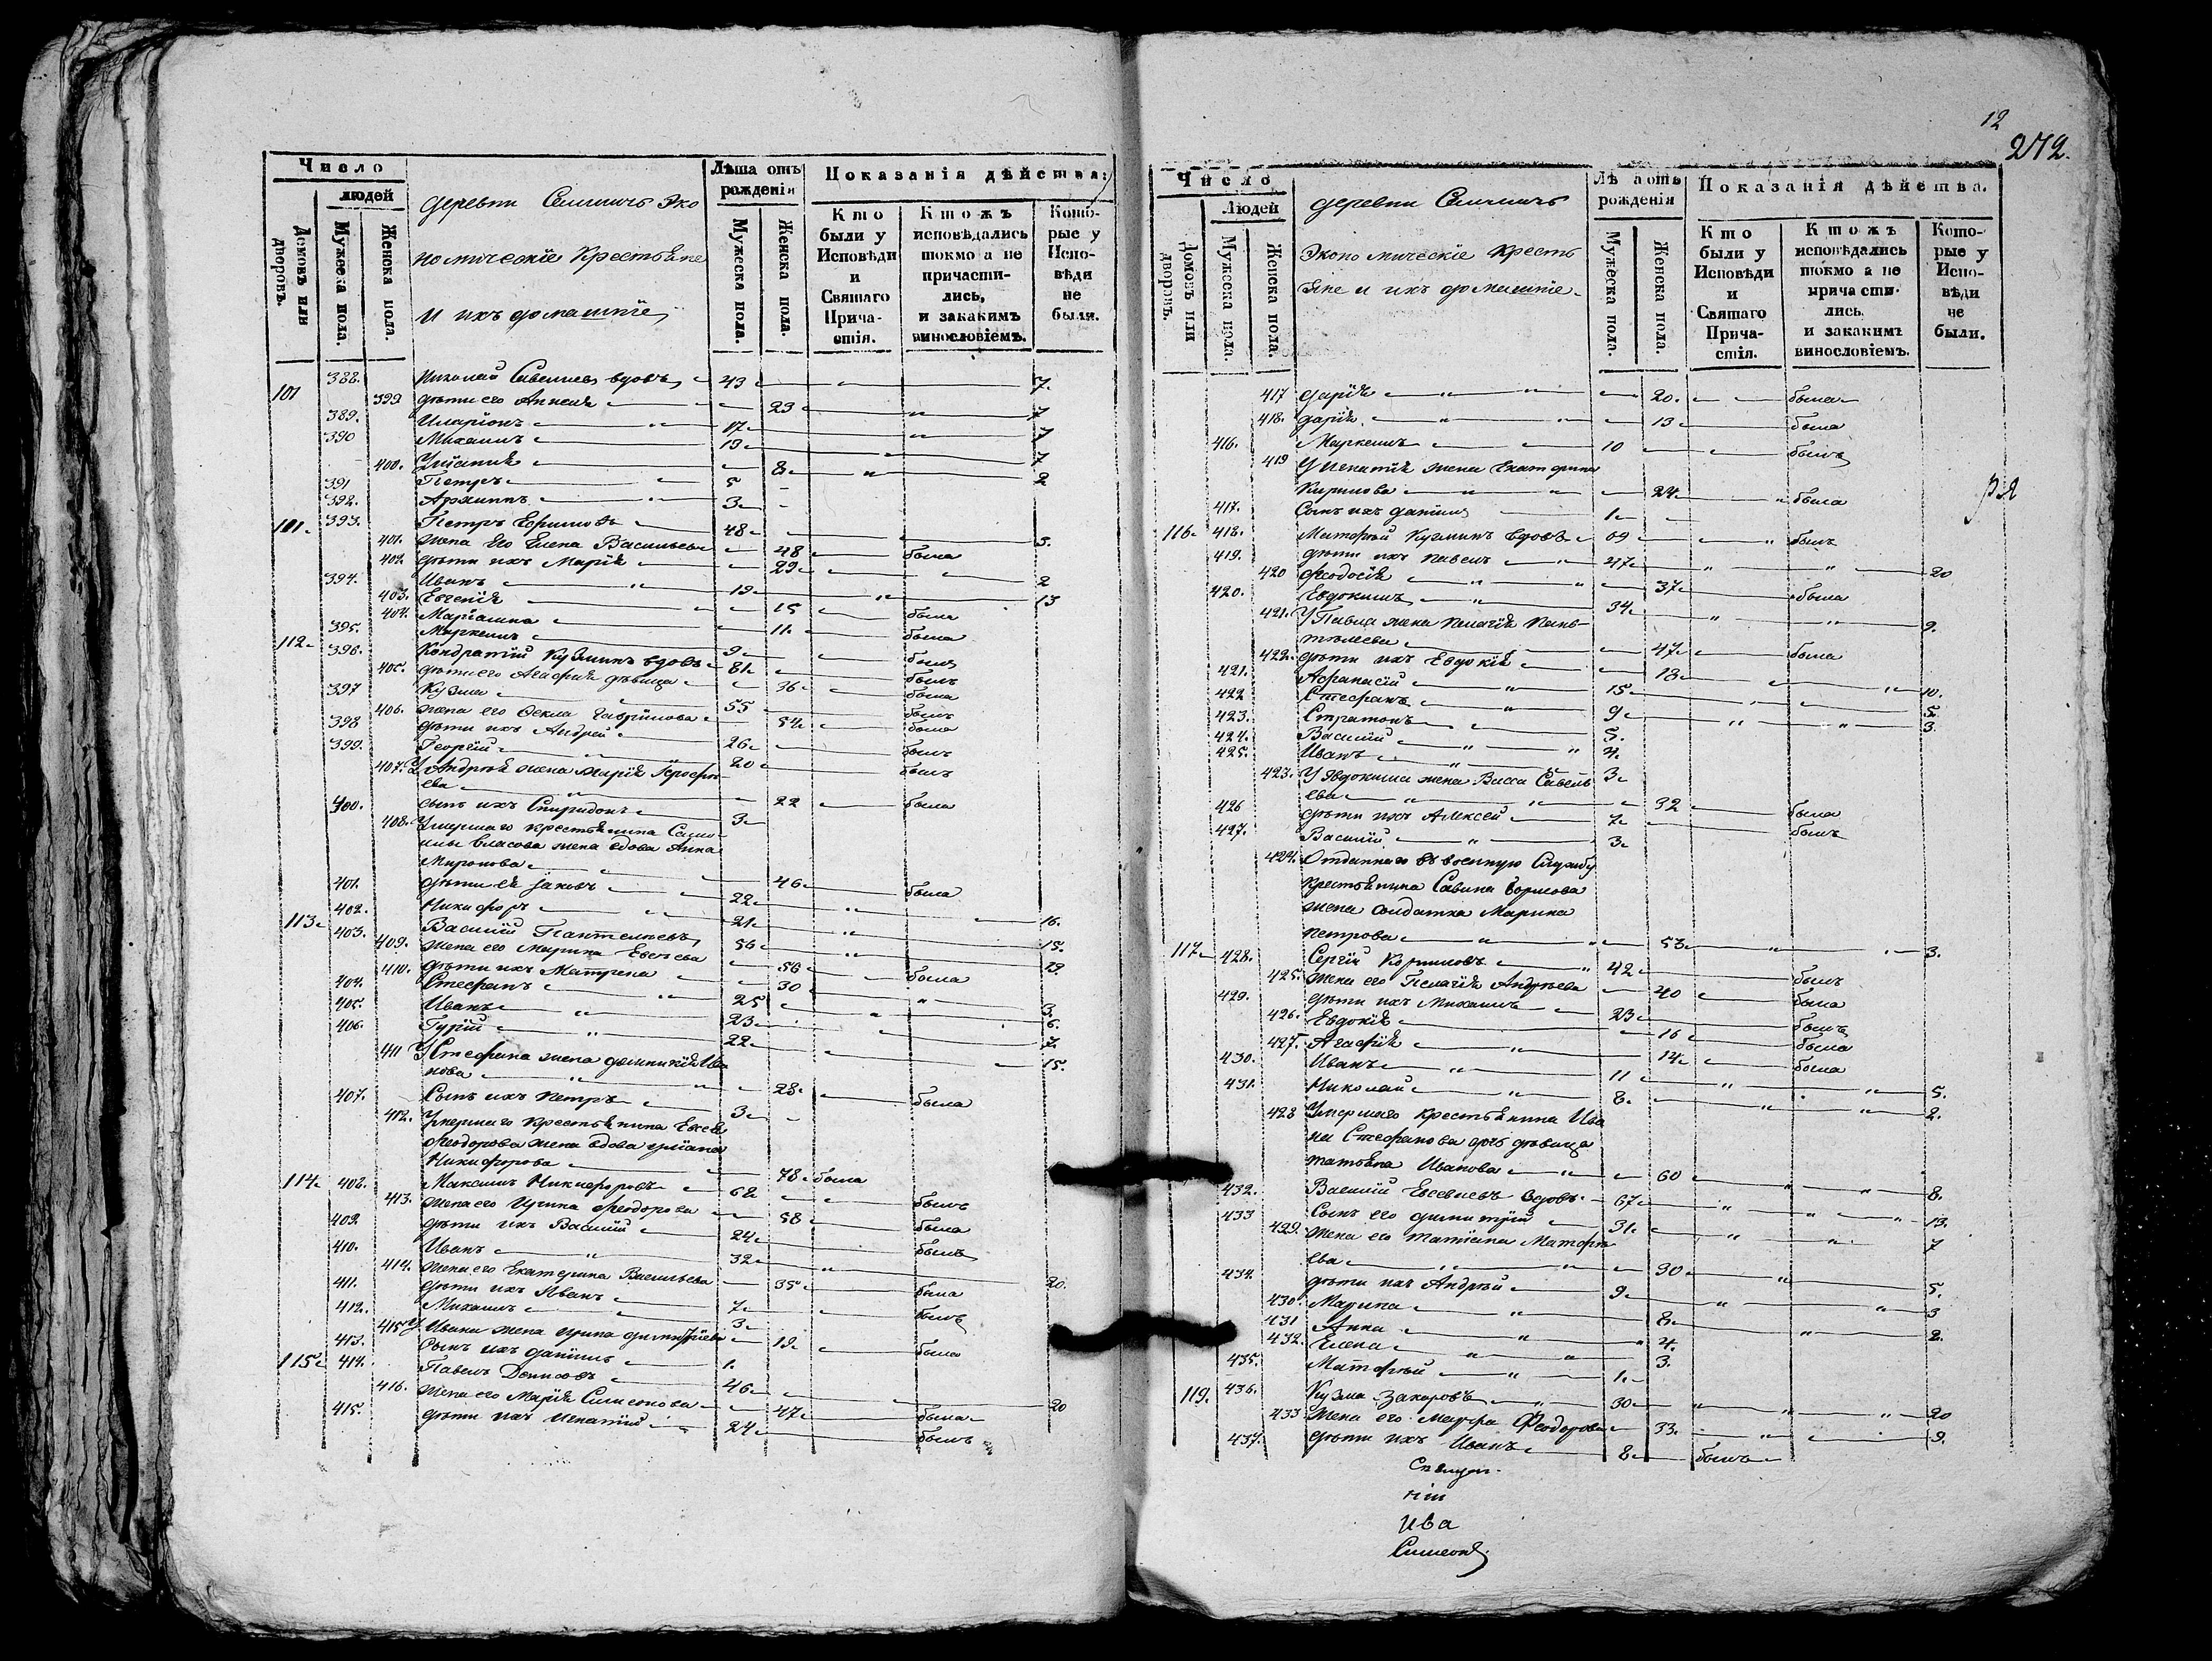 12
272.
Число
людей
Домовъ или дворовъ.
Мужеска пола.
Женска пола.
деревни Селищъ Эко
номическіе Крестьяне
и ихъ домашніе
Лѣта отъ рожденія
Мужеска пола.
Женска пола.
Показанія дѣйства:
Кто были у Исповѣди и Святаго Причастія.
Ктожъ исповѣдались токмо а не причастились, и закакимъ винословіемъ.
Которые у Исповѣди не были.
388. Николай Савельевъ вдовъ 43 7.
101 399 дѣти его 23 7
389. Иларіонъ 17 7
390 Михаилъ 13 7
400. 8 2
391 Петръ 5
392. Архиппъ 3
101 393. Петръ Ефимовъ 48 3.
401. жена Его Елена Васильева 48 была
402 дѣти ихъ Марія 29 2
394. Иванъ 19 13
403. Евгенія 15 была
404. Маріамна 11. была
395. Маркеллъ 9 былъ
112 396. Кондратій Кузминъ вдовъ 81 былъ
405. дѣти его Агафія дѣвица 36 была
397 Кузма 55 былъ
406. жена его Ѳекла Гаврілова 54 была
398 дѣти ихъ Андрей 26 былъ
399. Георгій 20 былъ
407. У Андрея жена Марія
ева 22 была
400. сынъ ихъ Спиридонъ 3
408. Умершаго крестьянина
Власова жена вдова Анна
Миронова 46 была
401. дѣти ея Іаковъ 22 16.
402. Никифоръ 21 15.
113 403. Василій Пантелѣевъ 56 19
409. жена его Марина 56 была
410. дѣти ихъ Матрена 30 3
404. Стефанъ 25 6.
405. Иванъ 23 7.
406. Гурій 22 15.
411 У Стефана жена Домникія Ива
нова 28 была
407. Сынъ ихъ Петръ 3
412. Умершаго Крестьянина
Феодорова жена вдова Уліана
Никифорова 78 была
114 408. Максимъ Никифоровъ 62 былъ
413. жена его Ирина Феодорова 58 была
409. дѣти ихъ Василій 24 былъ
410. Иванъ 32 20.
414. жена его Екатерина Васильева 35 была
411. дѣти ихъ Иванъ 7 былъ
412. Михаилъ 3
415 У Ивана жена Ирина Димитріева 19 была
413. Сынъ ихъ Даніилъ 1.
115 414. Павелъ Денисовъ 46 20
416. жена его Марія Симеонова 47 была
415. дѣти ихъ Игнатій 24 былъ
Число
Людей
Домовъ или дворовъ.
Мужеска пола.
Женска пола.
деревни Селищъ
Экономическіе Кресть
яне и ихъ домашніе
Лѣта отъ рожденія
Мужеска пола.
Женска пола.
Показанія дѣйства.
Кто были у Исповѣди и Святаго Причастія.
Ктожъ исповѣдались токмо а не причастились и закакимъ винословіемъ.
Которые у Исповѣди не были.
417 Дарія 20. была
418. Дарія 13 была
416. Маркеллъ 10 былъ
419 У Игнатія жена Екатерина
Кирилова 24 была
417. Сынъ ихъ Даніилъ 1
116 418. Матфей Кузминъ вдовъ 69 былъ
419. дѣти ихъ Павелъ 47 20
420 Феодосія 37 была
420. Евдокимъ 34 9.
421. У Павла жена Пелагія Пан
телеева 47 была
422. дѣти ихъ Евдокія 18 10.
421. Афанасій 15 5
422 Стефанъ 9 3.
423. Стратонъ 5.
424. Василій 4.
425. Иванъ 3
423. У Евдокима жена Васса Савель
ева 32 была
426 дѣти ихъ Алексей 7 былъ
427. Василій 3
424. Отданнаго въ военную Службу
крестьянина Савина Борисова
жена солдатка Марина
Петрова 53 3.
117 428. Сергій 42 былъ
425. жена его Пелагія Андреева 40 была
429. дѣти ихъ Михаилъ 23 былъ
426. Евдокія 16 была
427. Агафія 14 была
430. Иванъ 11 5.
431. Николай 8. 2.
428 Умершаго Крестьянина Ива
на Стефанова дочь дѣвица
Татьяна Иванова 60 8.
432. Василій Евсевіевъ вдовъ 67 13.
433 Сынъ его Димитрій 31. 7
429. жена его Татіана Матфе
ева 30 5.
434. дѣти ихъ Андрей 9 3
430. Марина 8 2.
431 Анна 4.
432. Елена 3.
435. Матфей 1.
119. 436. Кузма Захаровъ 30 20
433 жена его Марфа Феодорова 33. 9.
437. дѣти ихъ Иванъ 8 былъ
Священ
ник
Ива
Симеонов